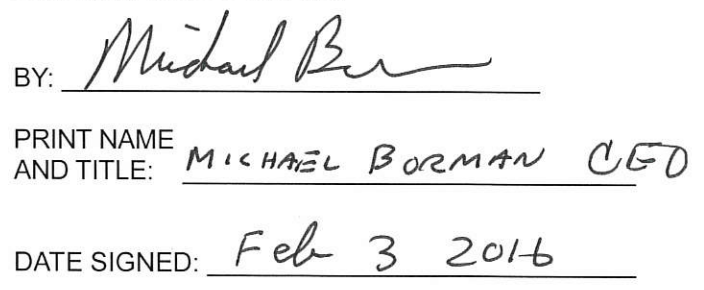 BY: Michael B
PRINT NAME
AND TITLE: MICHAEL BORMAN CEO
DATE SIGNED: Feb 3 2016